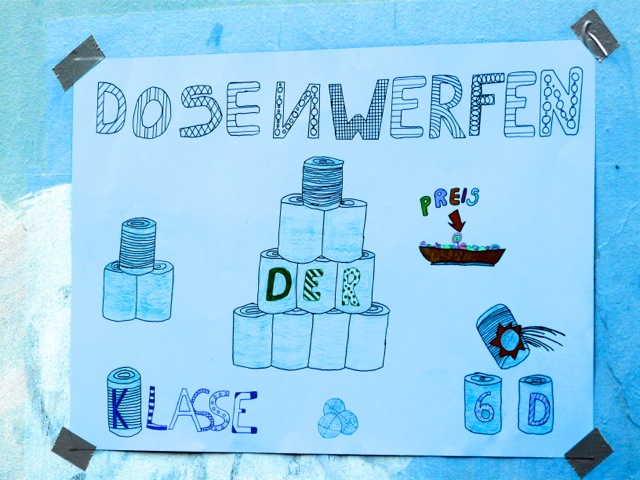 DOSENWERFEN
PREIS
DER
KLASSE 6D